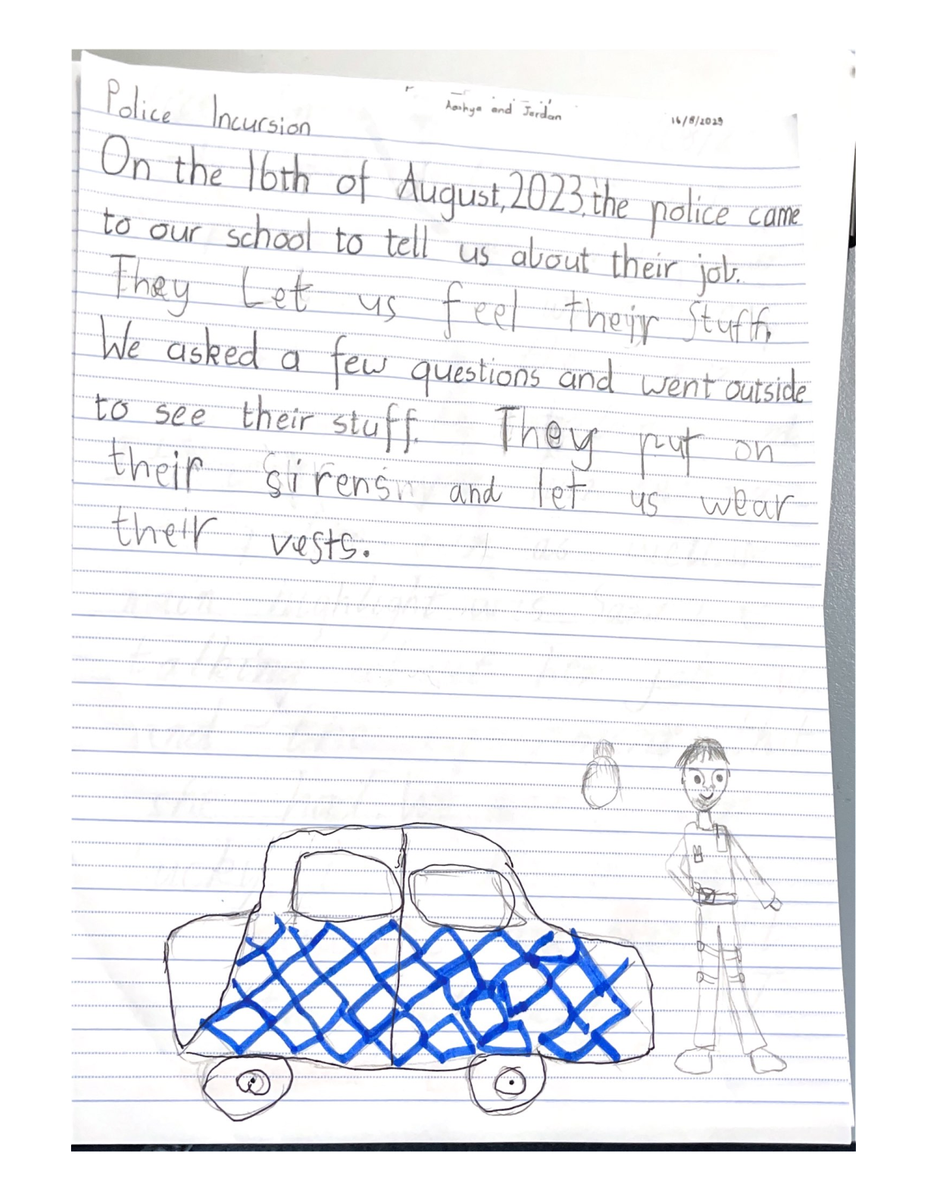 Police Incursion
Aashya and Jordan
16/8/2023
On the 16th of August, 2023, the police came
to our school to tell us about their job.
They Let us feel their stuff.
We asked a few questions and went outside
to see their stuff. They put on
their sirens and let us wear
their vests.